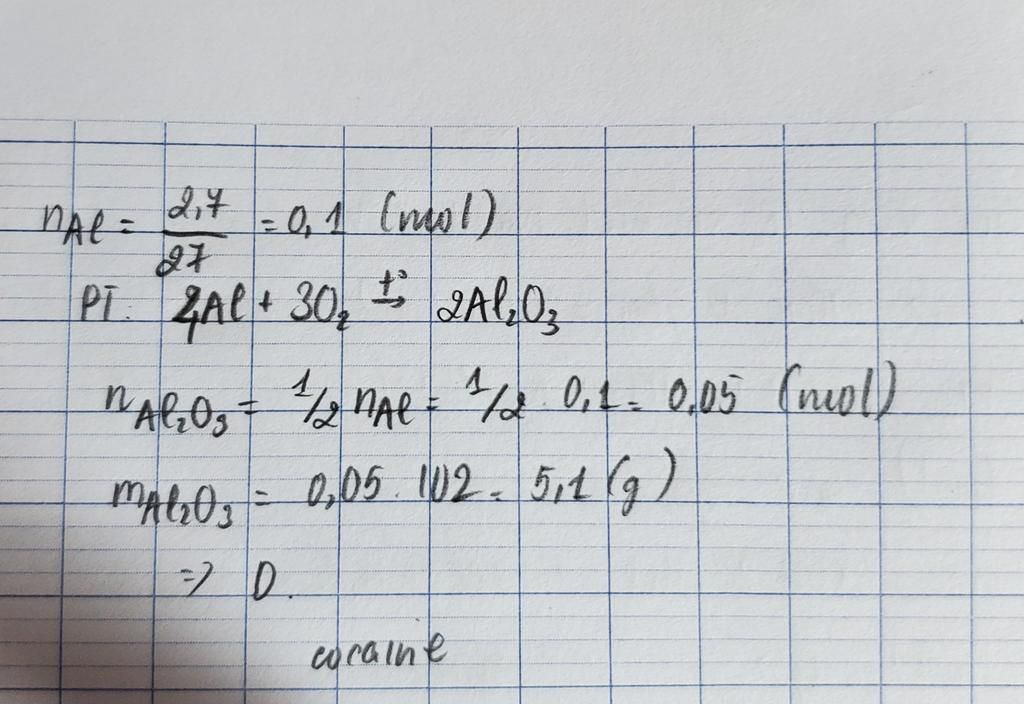 nAl = 2,7/27 = 0,1 (mol)
PT: 4Al + 3O₂ t°→ 2Al₂O₃
nAl₂O₃ = 1/2 nAl = 1/2 . 0,1 = 0,05 (mol)
mAl₂O₃ = 0,05 . 102 = 5,1 (g)
=> D.
cocaine